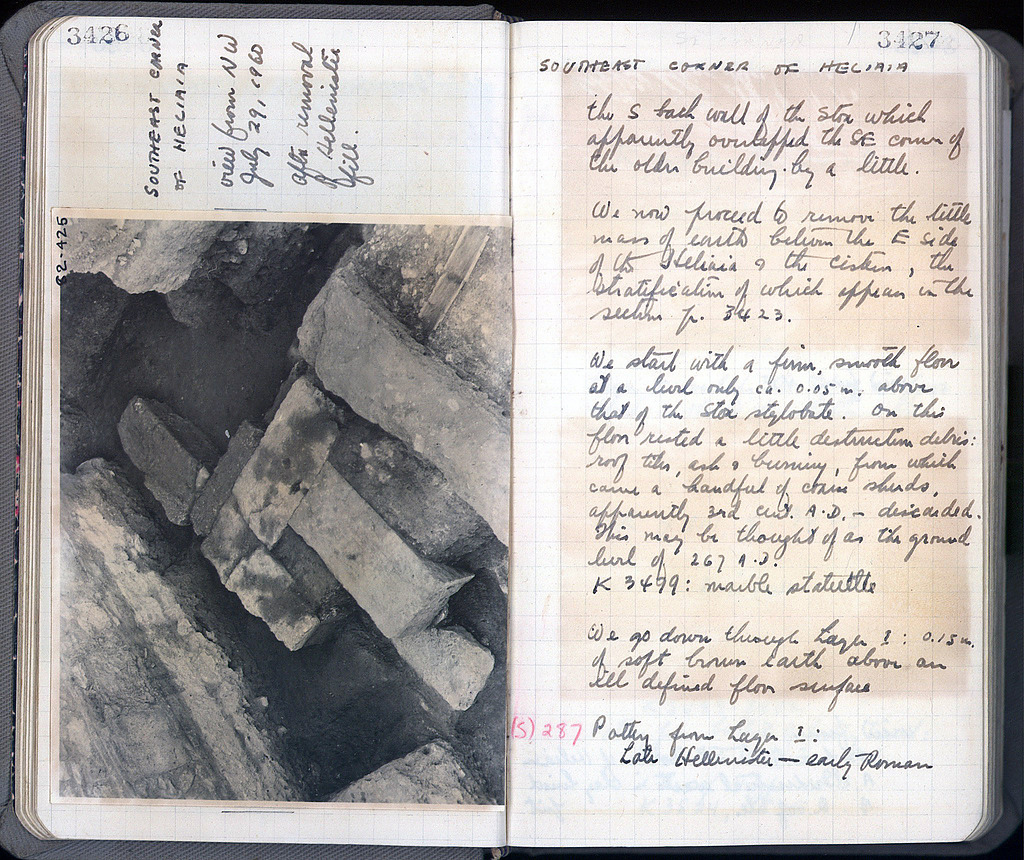 3426
SOUTHEAST CORNER
OF HELIAIA
view from NW
July 29, 1960
after removal
of Hellenistic
fill.
82-425
3427
SOUTHEAST CORNER OF HELIAIA
the S back wall of the Stoa which
apparently overlapped the SE corner of
the older building by a little.
We now proceed to remove the little
mass of earth between the E side
of the Heliaia & the cistern, the
stratification of which appears in the
section p. 3423.
We start with a firm, smooth floor
at a level only ca. 0.05 m. above
that of the Stoa stylobate. On this
floor rested a little destruction debris:
roof tiles, ash & burning, from which
came a handful of coarse sherds,
apparently 3rd cent. A.D. – discarded.
This may be thought of as the ground
level of 267 A.D.
K 3499: marble statuette
We go down through Layer I: 0.15 m.
of soft brown earth above an
ill defined floor surface
(S) 287 Pottery from Layer I:
Late Hellenistic – early Roman